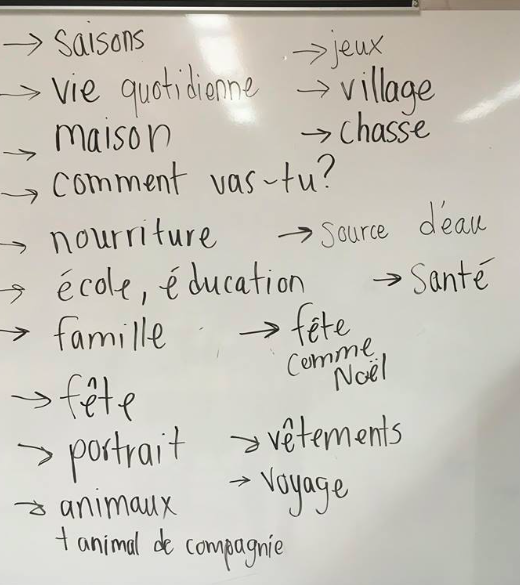 → saisons
→ jeux
→ vie quotidienne
→ village
→ maison
→ chasse
→ comment vas-tu?
→ nourriture
→ source d'eau
→ école, éducation
→ Santé
→ famille
→ fête
comme
Noël
→ fête
→ portrait
→ vêtements
→ animaux
+ animal de compagnie
→ voyage